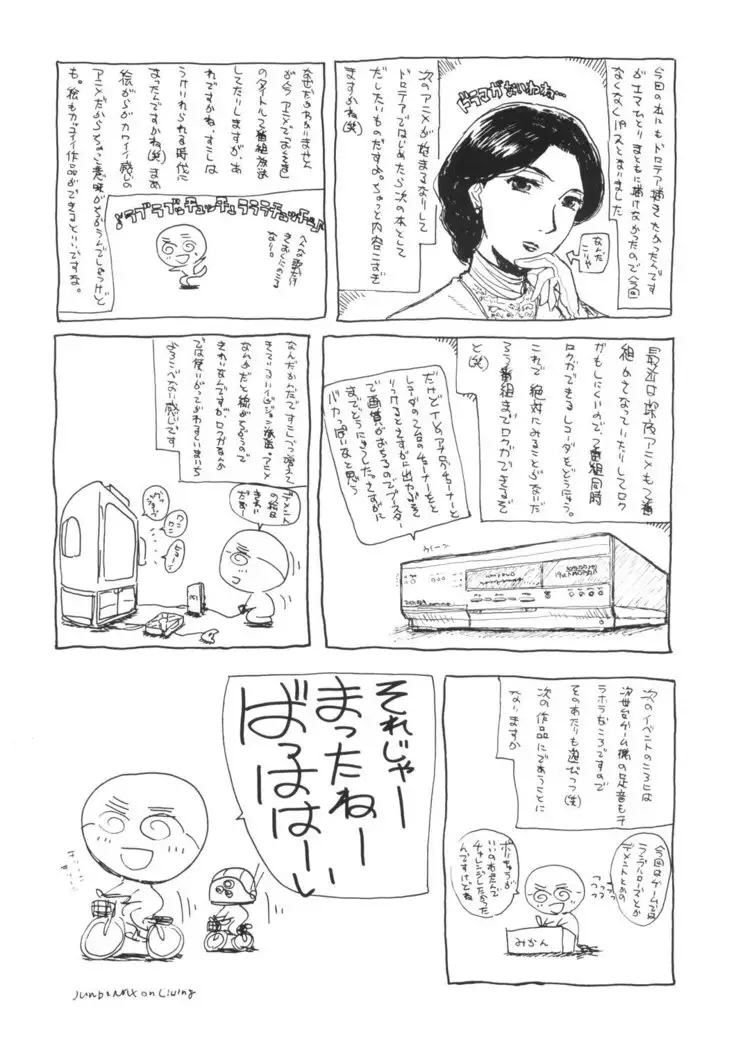 今回の本にもドロテア描きたかったんです
がエマひとりまともに描けなかったので今回
なくなくパスとなりました
ドラマガないわね…
なんだ
こりゃ
次のアニメが始まるなりして
ドロテアではじめたら次の本として
だしたいものですがちょっと内容こなぎ
ますかね(笑)
なぜだかわかりません
が今アニメで
のタイトルで番組放送
してたりしますが、あ
れですかね、すこしは
うけいれられる時代に
なったんですかね(笑)まあ
絵がらがカワイイ感じの
アニメだからちょっと意味がちがうんでしょうけど
も。絵もカッコイイ作品ができるといいですな。
♪ラブラブッチュッチュラララチュッチュ♪
へんな歌だけ
きおくにのこる
なり。
最近は深夜アニメもって番
組かさなっていたりしてロク
ガもしにくいので2番組同時
ロクガできるレコーダをどうにゅう。
これで絶対にみることがないだ
ろう番組までロクガできるぞ
と(笑)
だけど
レコーダの2台のチューナーをと
りつけるとさすがに出力ぶそく
で画質がおちるのでブースター
までどうにゅうした。さすがに
バカっぽいなと思う
ウィーン
なんだかんだですこしべつ現れて
きているハイビジョン放送。アニメ
なんかだと線がちがうので
きれいなんですがロクガなんか
では使いがってがわるくていまいち
よろこべない感じです
デメント
の絵は
きれい
だなー
ワニ
ワニ
次のイベントのころには
次世代ゲーム機の足音もチ
ラホラなころですので
そのあたりも遊びつつ(笑)
次の作品にであうことに
なりますか
今回はゲームでは
ランブルローズとか
デメントとかの
っっっ
ボリゅうが
いいのお選んで
チャレンジしたかった
んですけどね
みかん
それじゃー
まったねー
ばっははーい
Junp&MAX on Living